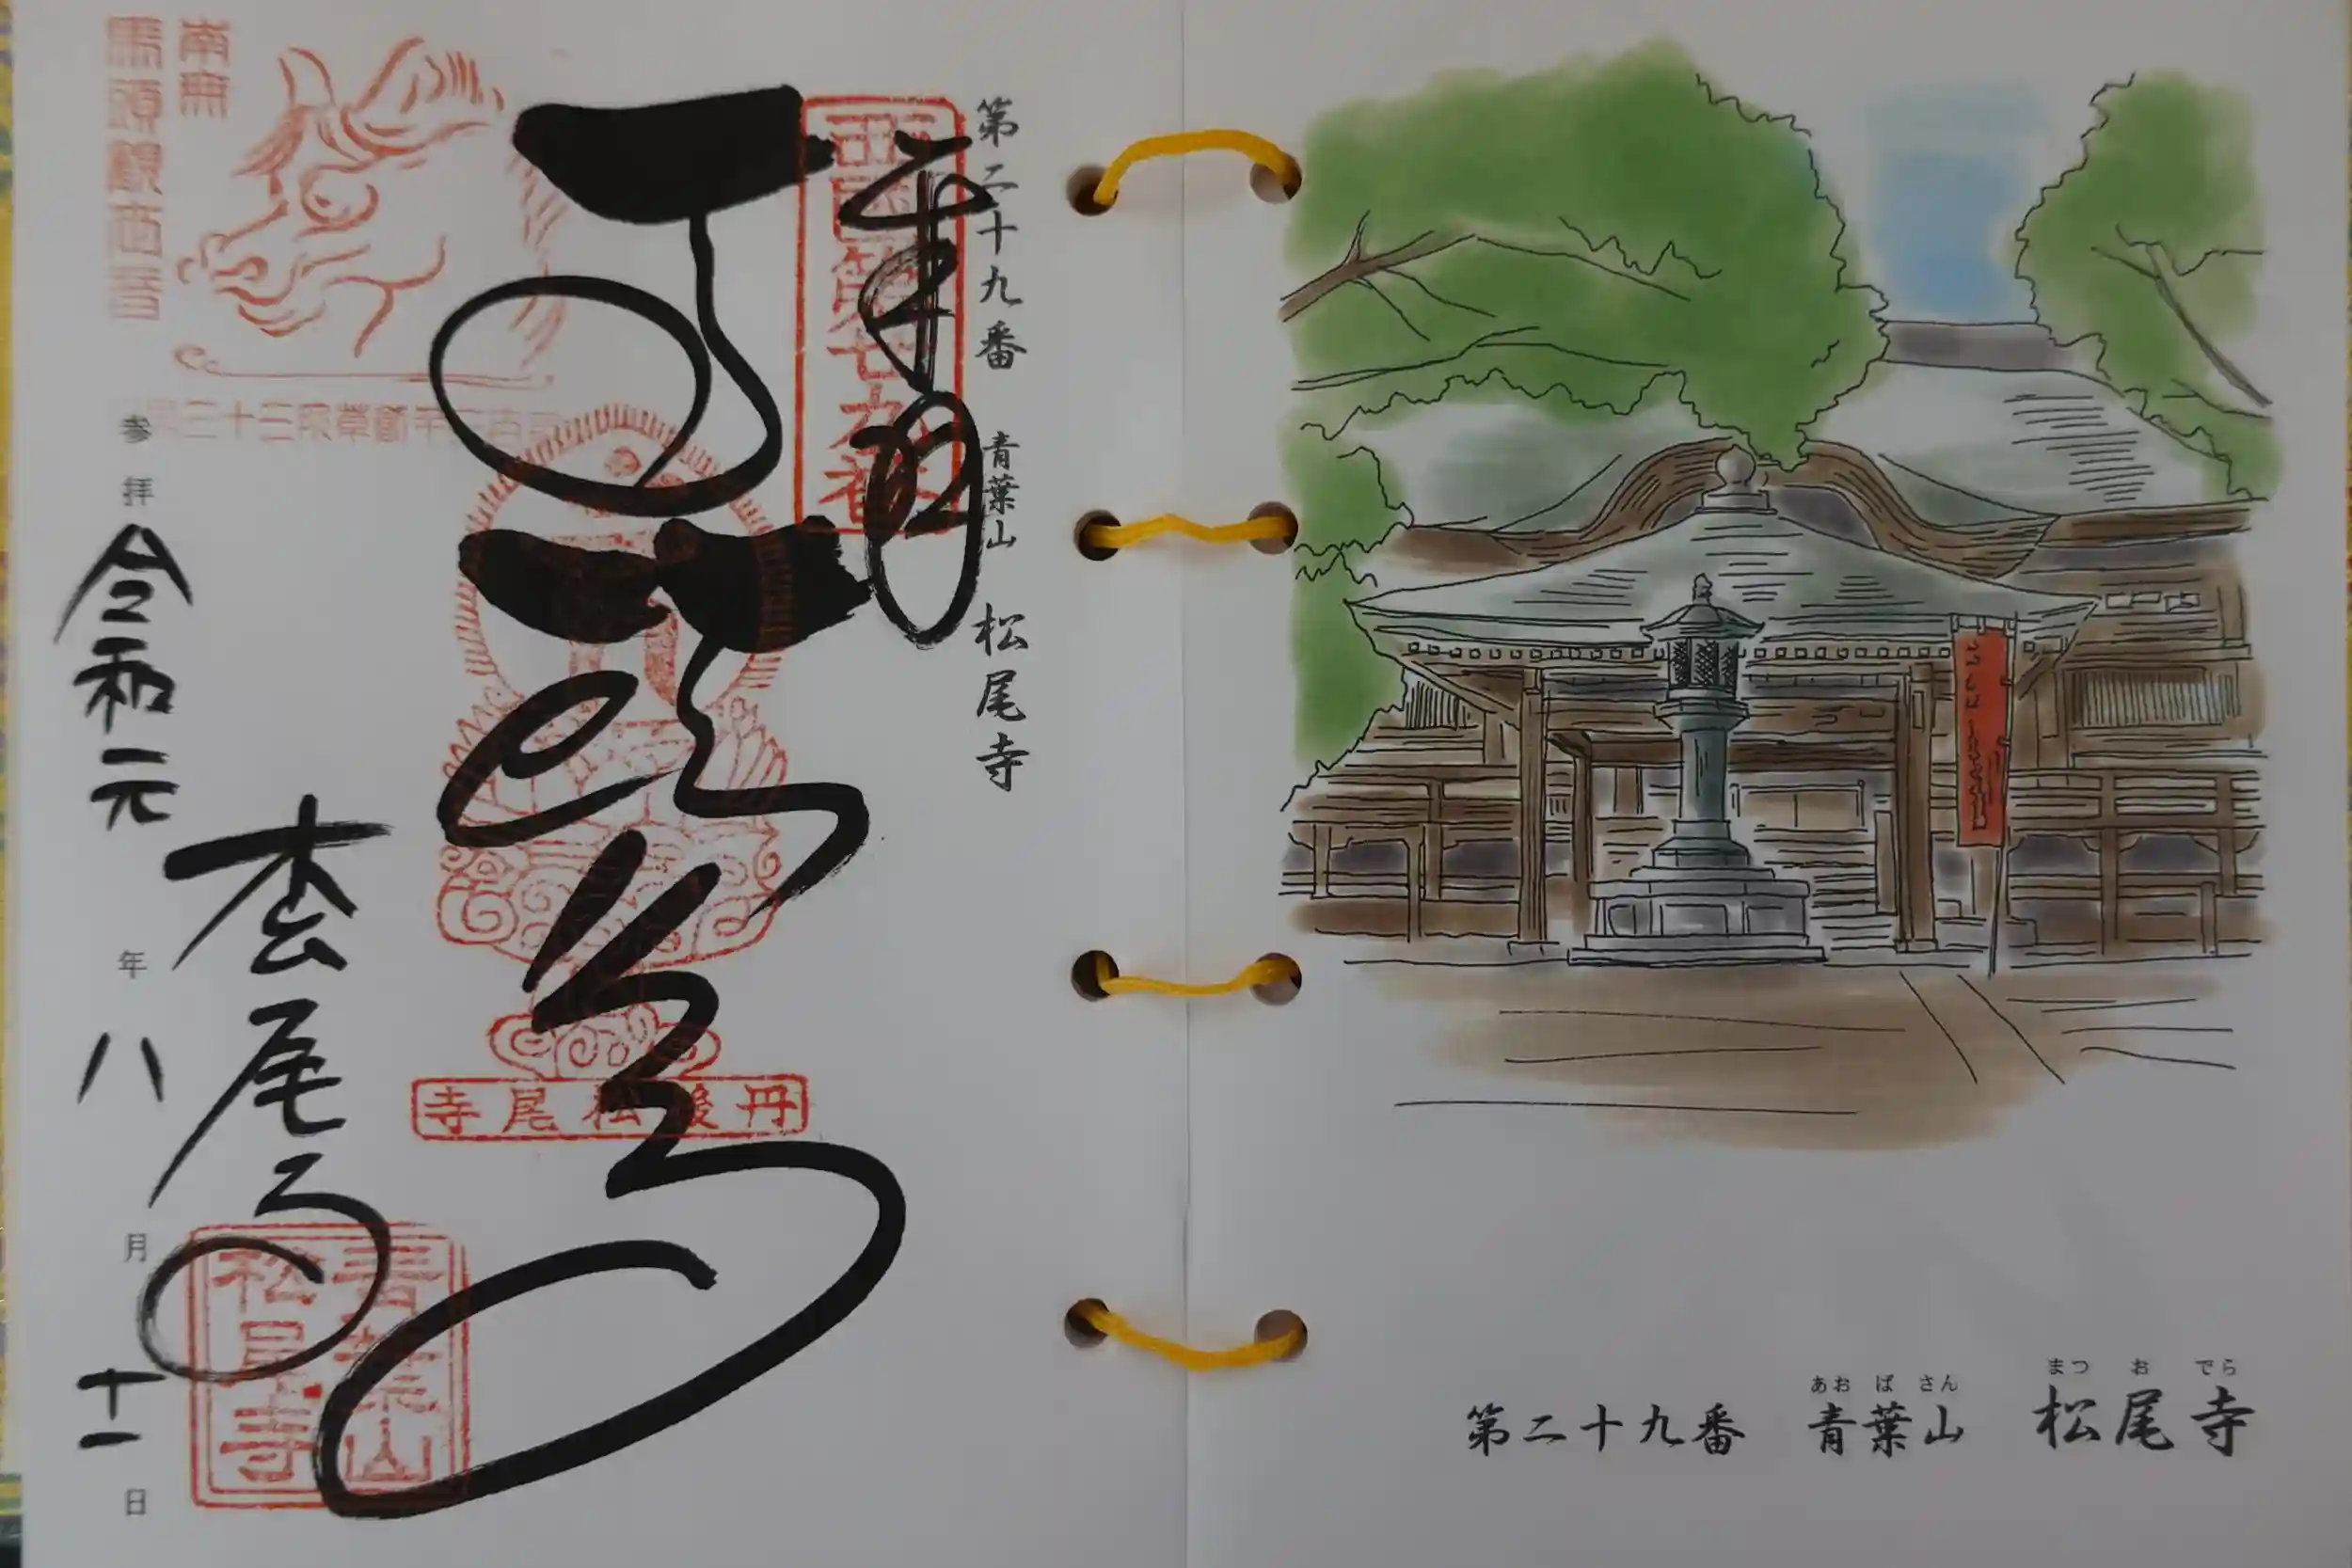 第二十九番 青葉山 松尾寺
奉拝
西国第廿九番
丹後松尾寺
南無
馬頭観世音
松尾寺
青葉山
松尾寺
参拝 令和元年八月十一日
まつ お でら
あお ば さん
第二十九番 青葉山 松尾寺